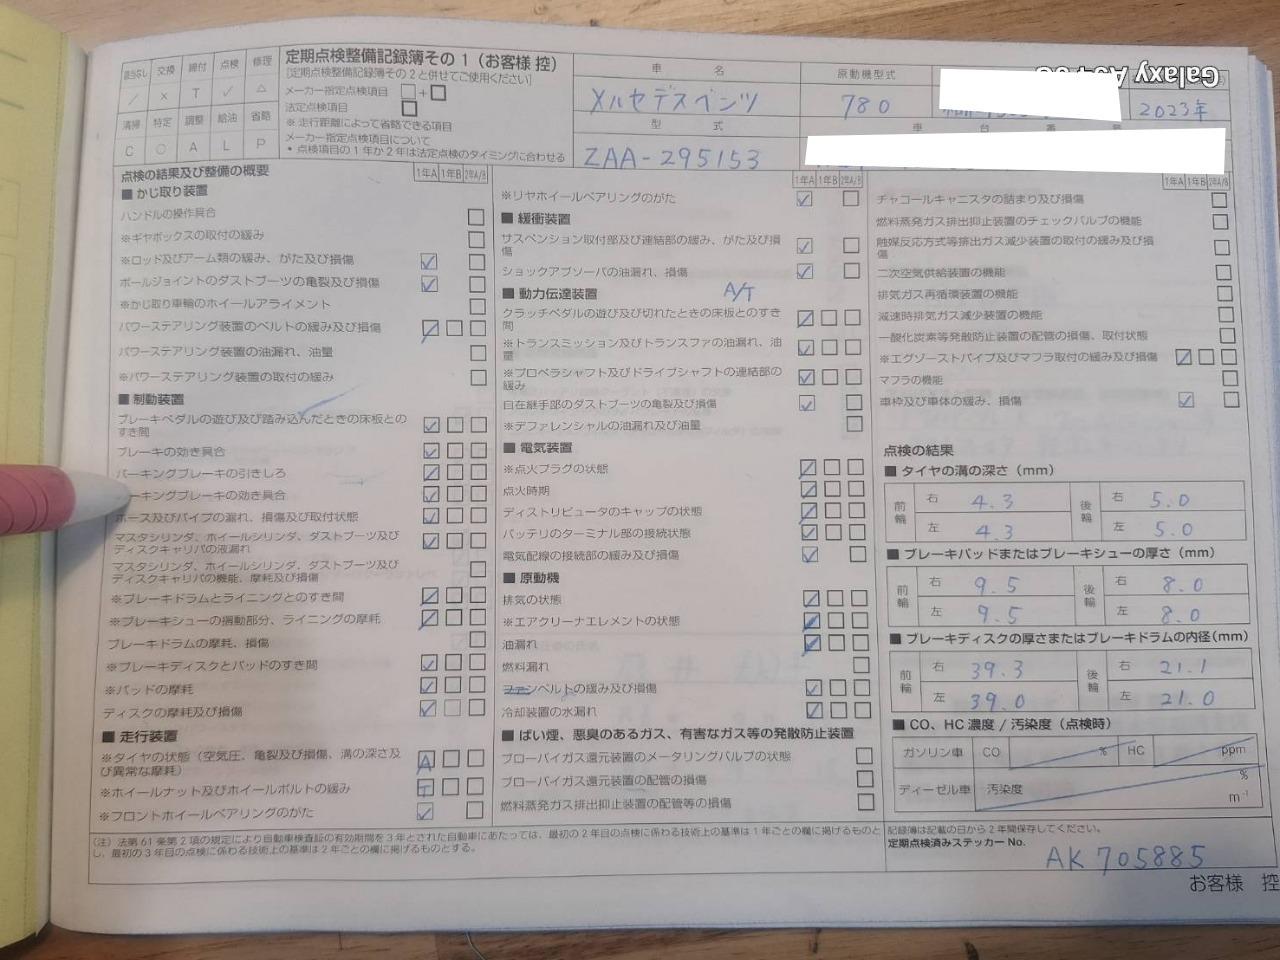 該当なし 交換 締付 点検 修理
／ × T ✓ △
清掃 特定 調整 給油 省略
C ○ A L P
定期点検整備記録簿その1（お客様 控）
［定期点検整備記録簿その2と併せてご使用ください］
メーカー指定点検項目 □+□
法定点検項目 □
※ 走行距離によって省略できる項目
メーカー指定点検項目について
• 点検項目の1年か2年は法定点検のタイミングに合わせる
車 名 原動機型式
メルセデスベンツ 780 2023年
型 式 車 台 番 号
ZAA-295153
Galaxy
点検の結果及び整備の概要
1年A 1年B 2年A/B
■ かじ取り装置
ハンドルの操作具合
※ギヤボックスの取付の緩み
※ロッド及びアーム類の緩み、がた及び損傷
ボールジョイントのダストブーツの亀裂及び損傷
※かじ取り車輪のホイールアライメント
パワーステアリング装置のベルトの緩み及び損傷
パワーステアリング装置の油漏れ、油量
※パワーステアリング装置の取付の緩み
■ 制動装置
ブレーキペダルの遊び及び踏み込んだときの床板との
すき間
ブレーキの効き具合
パーキングブレーキの引きしろ
ーキングブレーキの効き具合
ホース及びパイプの漏れ、損傷及び取付状態
マスタシリンダ、ホイールシリンダ、ダストブーツ及び
ディスクキャリパの液漏れ
マスタシリンダ、ホイールシリンダ、ダストブーツ及び
ディスクキャリパの機能、摩耗及び損傷
※ブレーキドラムとライニングとのすき間
※ブレーキシューの摺動部分、ライニングの摩耗
ブレーキドラムの摩耗、損傷
※ブレーキディスクとパッドのすき間
※パッドの摩耗
ディスクの摩耗及び損傷
■ 走行装置
※タイヤの状態（空気圧、亀裂及び損傷、溝の深さ及 A
び異常な摩耗）
※ホイールナット及びホイールボルトの緩み T
※フロントホイールベアリングのがた
1年A 1年B 2年A/B
※リヤホイールベアリングのがた
■ 緩衝装置
サスペンション取付部及び連結部の緩み、がた及び損
傷
ショックアブソーバの油漏れ、損傷
■ 動力伝達装置 A/T
クラッチペダルの遊び及び切れたときの床板とのすき
間
※トランスミッション及びトランスファの油漏れ、油
量
※プロペラシャフト及びドライブシャフトの連結部の
緩み
自在継手部のダストブーツの亀裂及び損傷
※デファレンシャルの油漏れ及び油量
■ 電気装置
※点火プラグの状態
点火時期
ディストリビュータのキャップの状態
バッテリのターミナル部の接続状態
電気配線の接続部の緩み及び損傷
■ 原動機
排気の状態
※エアクリーナエレメントの状態
油漏れ
燃料漏れ
ファンベルトの緩み及び損傷
冷却装置の水漏れ
■ ばい煙、悪臭のあるガス、有害なガス等の発散防止装置
ブローバイガス還元装置のメータリングバルブの状態
ブローバイガス還元装置の配管の損傷
燃料蒸発ガス排出抑止装置の配管等の損傷
1年A 1年B 2年A/B
チャコールキャニスタの詰まり及び損傷
燃料蒸発ガス排出抑止装置のチェックバルブの機能
触媒反応方式等排出ガス減少装置の取付の緩み及び損
傷
二次空気供給装置の機能
排気ガス再循環装置の機能
減速時排気ガス減少装置の機能
一酸化炭素等発散防止装置の配管の損傷、取付状態
※エグゾーストパイプ及びマフラ取付の緩み及び損傷
マフラの機能
車枠及び車体の緩み、損傷
点検の結果
■ タイヤの溝の深さ（mm）
前輪 右 4.3 後輪 右 5.0
左 4.3 左 5.0
■ ブレーキパッドまたはブレーキシューの厚さ（mm）
前輪 右 9.5 後輪 右 8.0
左 9.5 左 8.0
■ ブレーキディスクの厚さまたはブレーキドラムの内径（mm）
前輪 右 39.3 後輪 右 21.1
左 39.0 左 21.0
■ CO、HC濃度 / 汚染度（点検時）
ガソリン車 CO % HC ppm
ディーゼル車 汚染度 %
m⁻¹
（注）法第61条第2項の規定により自動車検査証の有効期間を3年とされた自動車にあたっては、最初の2年目の点検に係わる技術上の基準は1年ごとの欄に掲げるものと
し、最初の3年目の点検に係わる技術上の基準は2年ごとの欄に掲げるものとする。
記録簿は記載の日から2年間保存してください。
定期点検済みステッカーNo.
AK 705885
お客様 控